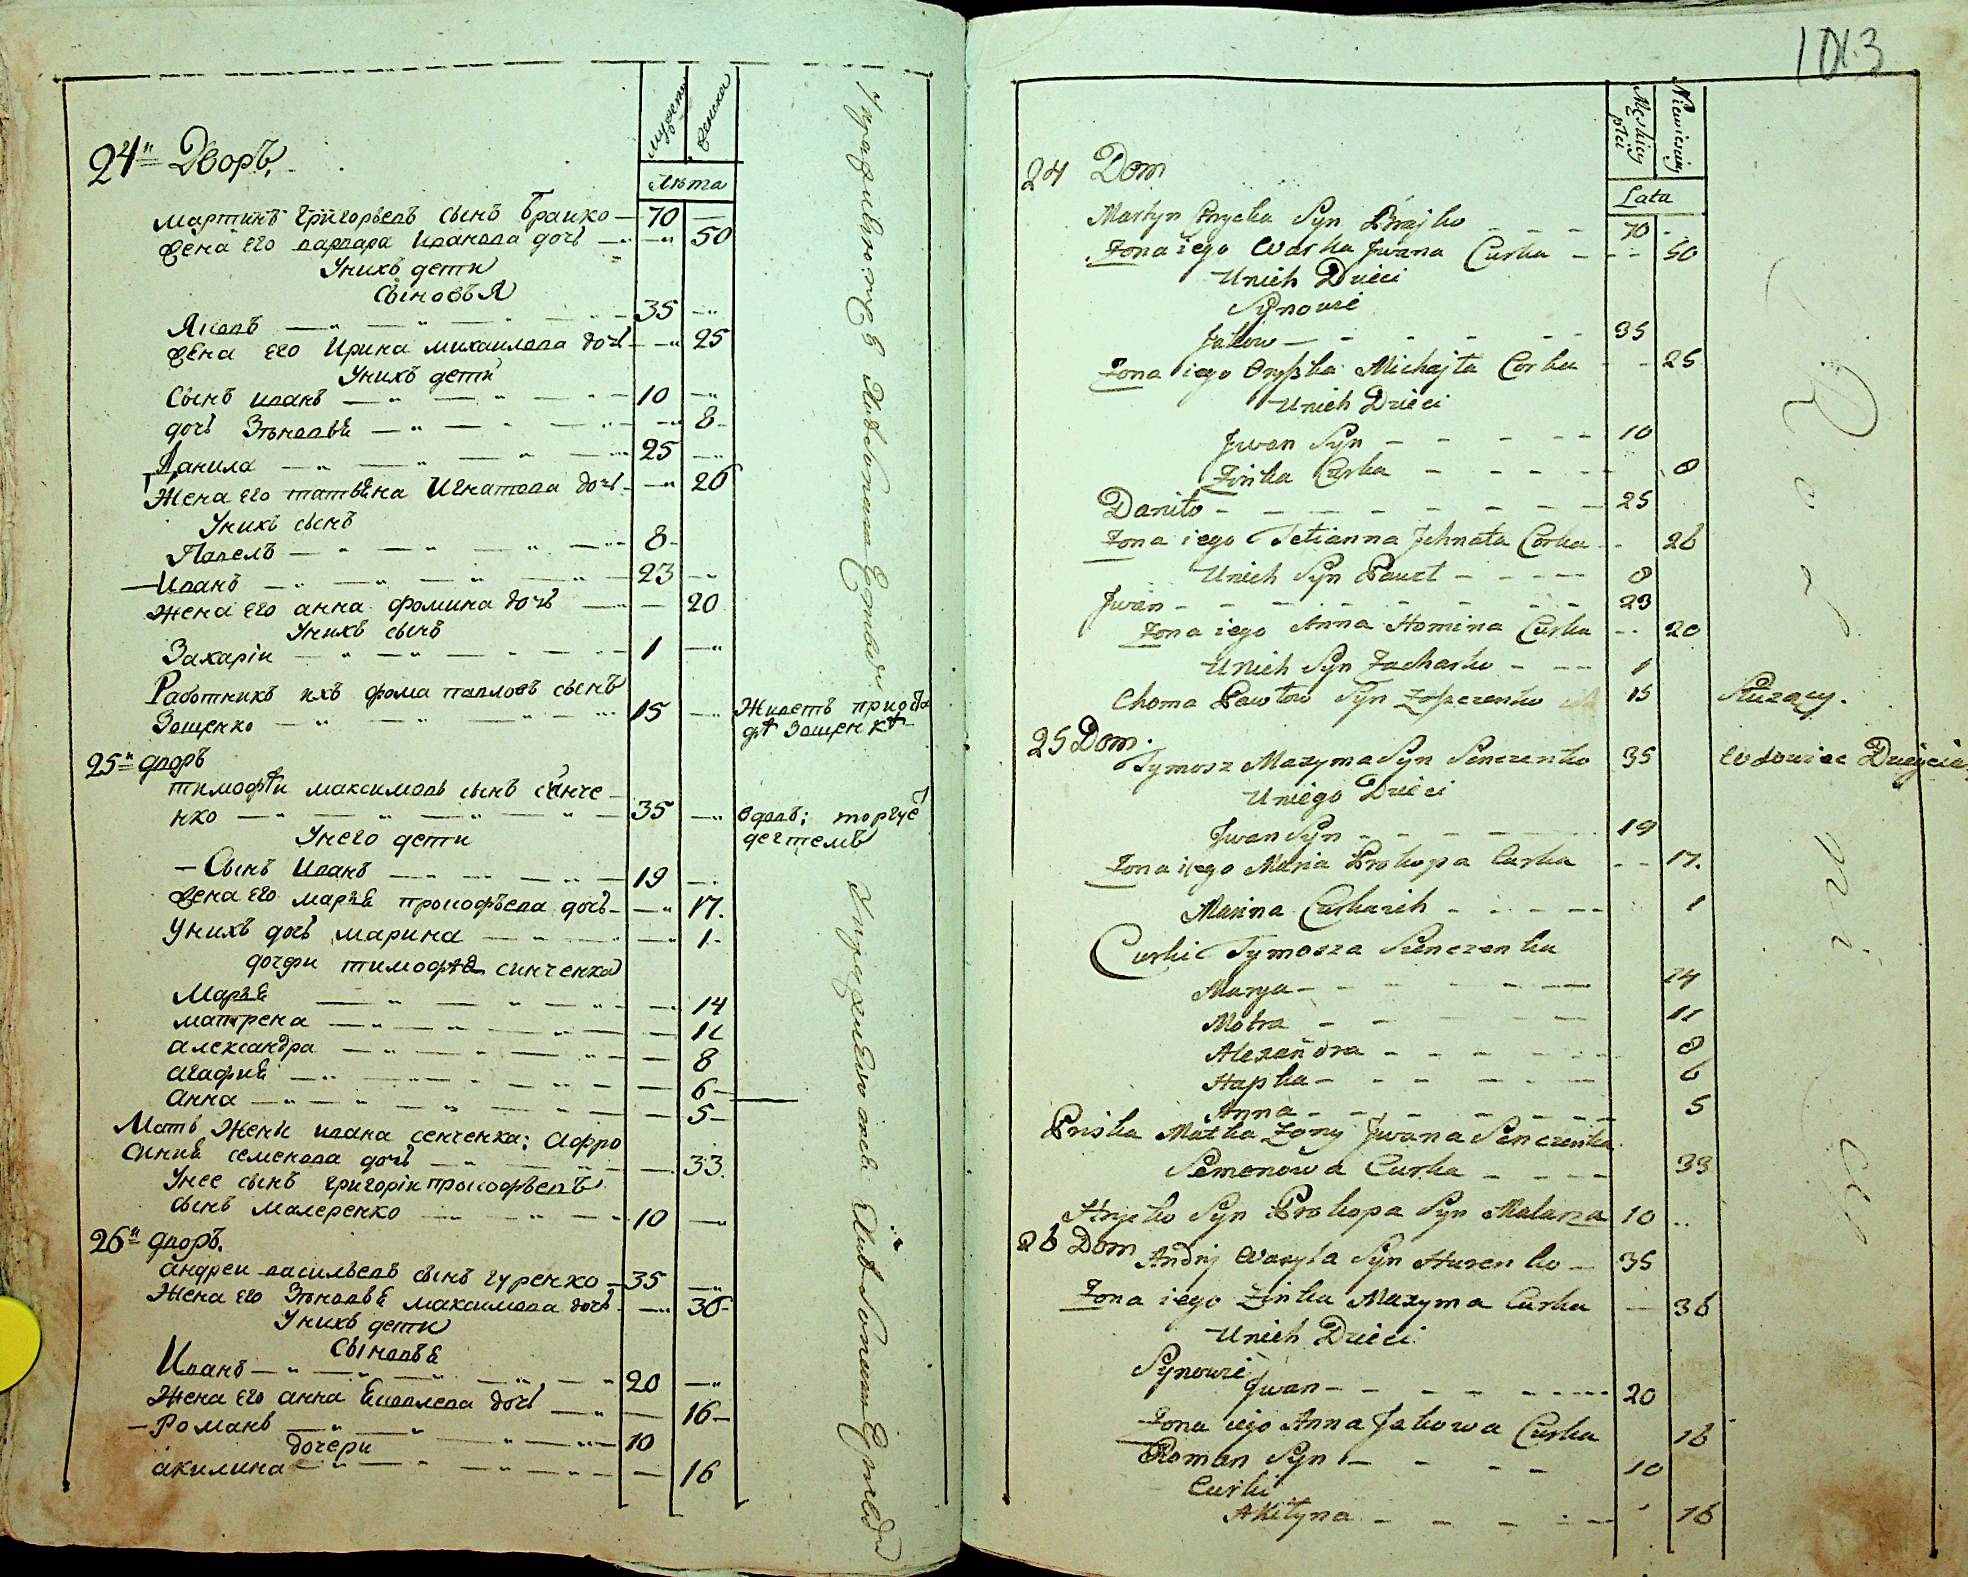 мужеска
женска
Лѣта
24й Дворъ.
мартинъ григорьевъ сынъ Браико — 70 —
жена его варвара Иванова дочь — „ — „ 50
У нихъ дети
Сыновья
Яковъ — „ — „ — „ — 35 — „
жена его Ирина михаилова дочь — — „ 25
У нихъ дети
Сынъ иванъ — „ — „ — „ — 10 — „
дочь Зѣновья — „ — „ — „ — „ 8
Данила — „ — „ — „ — 25 — „
Жена его татьяна Игнатова дочь — — „ 26
У нихъ сынъ
Павелъ — „ — „ — „ — 8
— Иванъ — „ — „ — „ — 23 — „
жена его анна фомина дочь — „ — 20
У нихъ сынъ
Захаріи — „ — „ — „ — 1 — „
Работникъ ихъ фома павловъ сынъ
Зощенко — „ — „ — „ — 15 — „ Живетъ при
Зощенкѣ
25й дворъ
тимофѣи максимовъ сынъ сѣнче
нко — „ — „ — „ — 35 — „ вдовъ; торгуе
дегтемъ
У него дети
— Сынъ Иванъ — „ — „ — 19 — „
жена его марья прокофьева дочь — — „ 17.
У нихъ дочь марина — „ — „ — „ 1
дочери тимофѣя синченка
Марья — „ — „ — „ — 14
матрена — „ — „ — „ — 11
александра — „ — „ — „ — 8
агафия — „ — „ — „ — 6
Анна — „ — „ — „ — 5
Мать жены ивана сенченка; Афро
синия семенова дочь — „ — „ — 33
У нее сынъ григоріи прокофьевъ
сынъ маляренко — „ — „ — 10 — „
26й дворъ.
андреи васильевъ сынъ гуренко — 35 — „
Жена его Зѣновья максимова дочь — — „ 36
У нихъ дети
Сыновья
Иванъ — „ — „ — „ — 20 — „
Жена его анна яковлева дочь — „ — 16
— Романъ — „ — „ — „ — 10
дочери
акилина — „ — „ — „ — 16
1013
Męskiey płci
Niewiesciey
Lata
24 Dom
Martyn Hrycka Syn Brajko - - - 70 -
Zona iego Warka Jwana Curka - - - 50
Unich Dzieci
Synowie
Jakow - - - - - 35
Zona iego Oryszka Michajła Corka - - 25
Unich Dzieci
Jwan Syn - - - - 10
Zińka Curka - - - - 8
Daniło - - - - - - - 25
Zona iego Tetianna Jhnata Corka - - 26
Unich Syn Paweł - - - - 8
Jwan - - - - - - - 23
Zona iego Anna Homina Curka - - 20
Unich Syn Zacharko - - - 1
Choma Pawłow Syn Zoszczenko 15 Służący.
25 Dom.
Tymosz Maxyma Syn Senczenko 35 Wdowiec
Uniego Dzieci
Jwan Syn - - - - 19
Zona iego Maria Prokopa Curka - - 17.
Marina Curka ich - - - - 1
Curki Tymosza Senczenka
Marya - - - - - 14
Motra - - - - 11
Alexandra - - - - 8
Hapka - - - - - 6
Anna - - - - - 5
Priska Matka Zony Jwana Senczenka
Semenowa Curka - - - - 33
Hryćko Syn Prokopa Syn Malarza 10 ..
26 Dom Andrij Wasyla Syn Hurenko - 35
Zona iego Zińka Maxyma Curka - 36
Unich Dzieci
Synowie
Jwan - - - - - - 20
Zona iego Anna Jakowa Curka 16
Roman Syn - - - - 10
Curki
Akilyna - - - - - 16